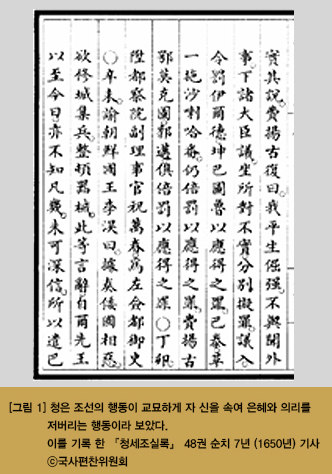 實其說費揚古復曰我平生倔强不與聞外
事下諸大臣議坐所對不實分別擬罪議入
令罰伊爾德坤巴圖魯以應得之罪巴泰革
一拖沙喇哈番仍倍罰以應得之罪費揚古
鄂莫克圖郭邁俱倍罰以應得之罪○丁卯
陞都察院副理事官祝萬春爲左僉都御史
○辛未諭朝鮮國王李淏曰據奏倭國相惡
欲修城集兵整頓器械此等言辭自爾先王
以至今日亦不知凡幾未可深信所以遣巴
[그림 1] 청은 조선의 행동이 교묘하게 자 신을 속여 은혜와 의리를
저버리는 행동이라 보았다.
이를 기록 한 「청세조실록」 48권 순치 7년 (1650년) 기사
ⓒ국사편찬위원회